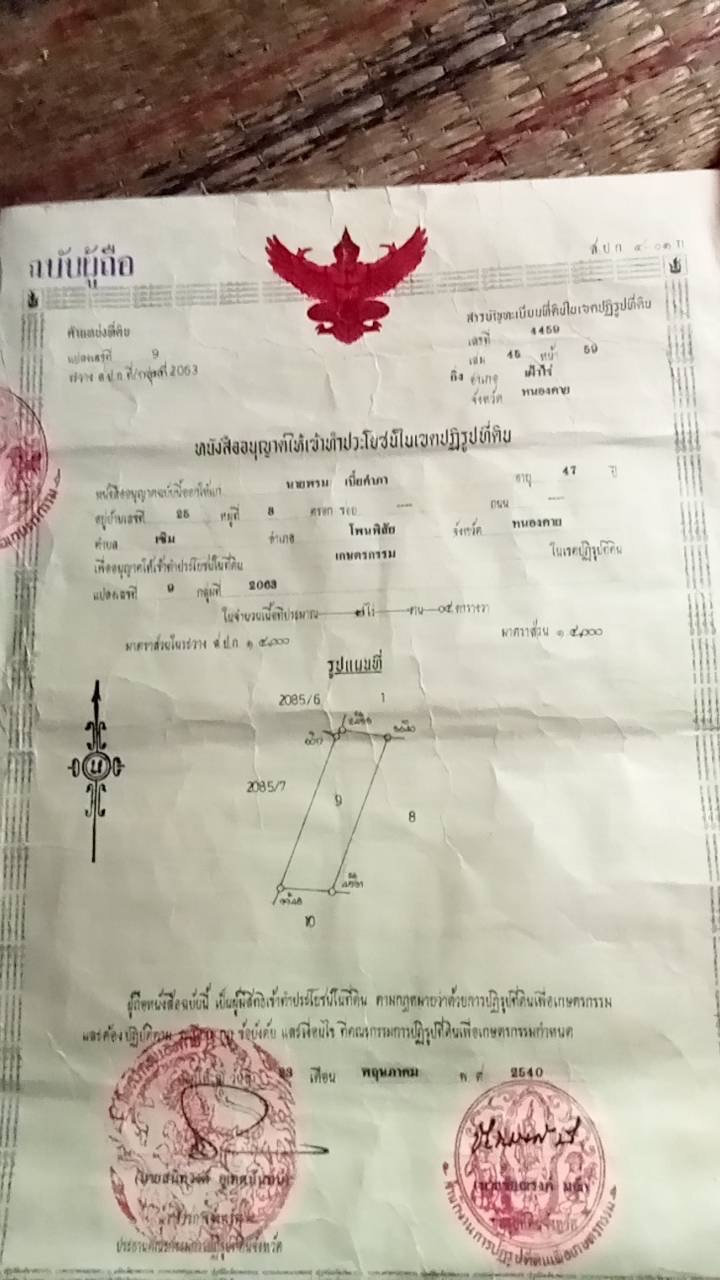 ฉบับผู้ถือ
ส.ป.ก. ๔-๐๑ ก
สารบัญทะเบียนที่ดินในเขตปฏิรูปที่ดิน
ตำแหน่งที่ดิน
เลขที่ 4459
แปลงเลขที่ 9
เล่ม 45 หน้า 59
ระวาง ส.ป.ก.ที่/กลุ่มที่ 2063
กิ่ง อำเภอ เฝ้าไร่
จังหวัด หนองคาย
หนังสืออนุญาตให้เข้าทำประโยชน์ในเขตปฏิรูปที่ดิน
หนังสืออนุญาตฉบับนี้ออกให้แก่ นายพรม เบี้ยคำภา อายุ 47 ปี
อยู่บ้านเลขที่ 25 หมู่ที่ 8 ตรอก ซอย ---- ถนน ----
ตำบล เซิม อำเภอ โพนพิสัย จังหวัด หนองคาย
เพื่ออนุญาตให้เข้าทำประโยชน์ในที่ดิน เกษตรกรรม ในเขตปฏิรูปที่ดิน
แปลงเลขที่ 9 กลุ่มที่ 2063
ในจำนวนเนื้อที่ประมาณ ไร่ งาน ตารางวา
มาตราส่วนในระวาง ส.ป.ก. ๑ ๔๐๐๐ มาตราส่วน ๑ ๔๐๐๐
รูปแผนที่
2085/6 1
2085/7
9
8
10
น
ผู้ถือหนังสือฉบับนี้ เป็นผู้มีสิทธิเข้าทำประโยชน์ในที่ดิน ตามกฎหมายว่าด้วยการปฏิรูปที่ดินเพื่อเกษตรกรรม
และต้องปฏิบัติตาม ข้อบังคับ และเงื่อนไข ที่คณะกรรมการปฏิรูปที่ดินเพื่อเกษตรกรรมกำหนด
23 เดือน พฤษภาคม พ.ศ. 2540
ประธานคณะกรรมการปฏิรูปที่ดินจังหวัด
สำนักงานการปฏิรูปที่ดินเพื่อเกษตรกรรม